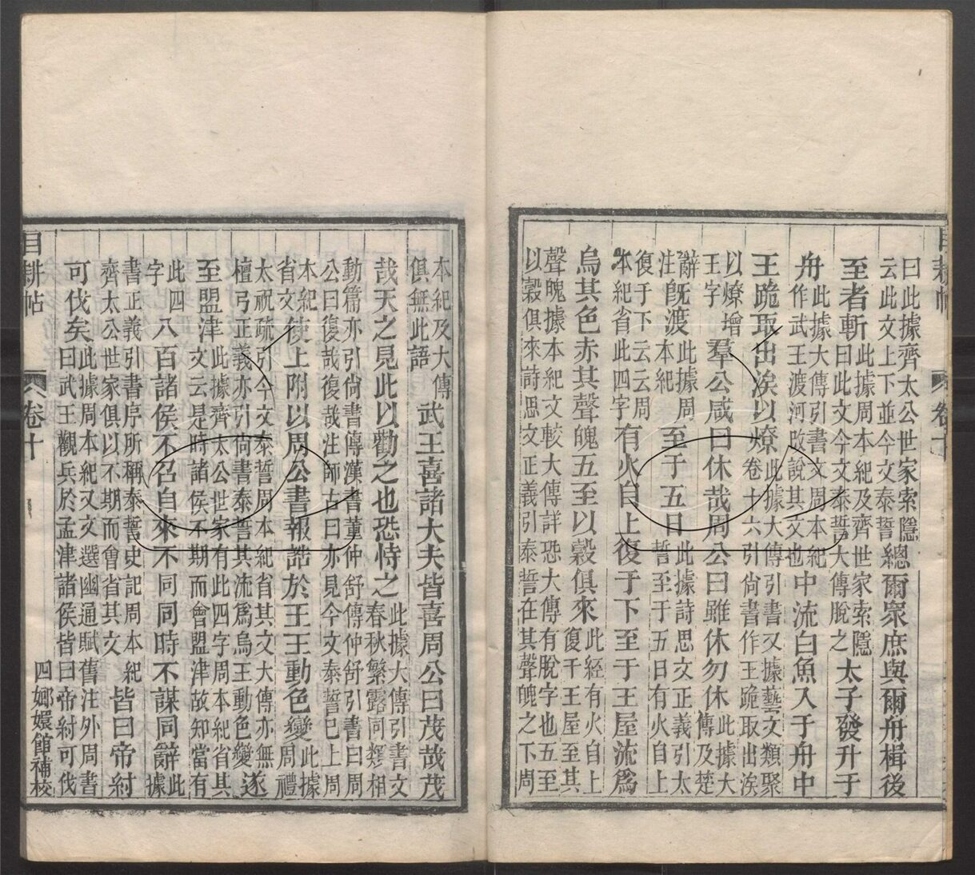 曰此據齊太公世家索隱
云此文上下並今文泰誓
總爾衆庶與爾舟楫後
至者斬
此據周本紀及齊世家索隱
曰此文今文泰誓大傳脫之
太子發升于
舟
此據大傳引書文周本紀
作武王渡河故說其文也
中流白魚入于舟中
王跪取出涘以燎
此據大傳引書又據藝文類聚
卷十六引尙書作王跪取出涘
以燎增
王字
羣公咸曰休哉周公曰雖休勿休
此據大
傳及楚
辭
注
旣渡
此據周
本紀
至于五日
此據詩思文正義引太
誓至于五日有火自上
復于下云云周
本紀省此四字
有火自上復于下至于王屋流爲
烏其色赤其聲魄五至以穀俱來
此經有火自上
復于王屋至其
聲魄據本紀文較大傳詳恐大傳有脫字也五至
以穀俱來詩思文正義引泰誓在其聲魄之下周
本紀及大傳
俱無此語
武王喜諸大夫皆喜周公曰茂哉茂
哉天之見此以勸之也恐恃之
此據大傳引書文
春秋繁露同類相
動篇亦引尙書傳漢書董仲舒傳仲舒引書曰周
公曰復哉復哉注師古曰亦見今文泰誓已上周
本紀
省文
使上附以周公書報誥於王王動色變
此據
周禮
太祝疏引今文泰誓周本紀省其文大傳亦無
檀弓正義亦引尙書泰誓其流爲烏王動色變
遂
至盟津
此據齊太公世家有此四字周本紀省其
文云是時諸侯不期而會盟津故知當有
此四
字
八百諸侯不召自來不同同時不謀同辭
此
據
書正義引書序所稱泰誓史記周本紀
齊太公世家俱以不期而會省其文
皆曰帝紂
可伐矣
此據周本紀又文選幽通賦舊注外周書
曰武王觀兵於孟津諸侯皆曰帝紂可伐
目耕帖
卷十
四
嫏嬛館補校